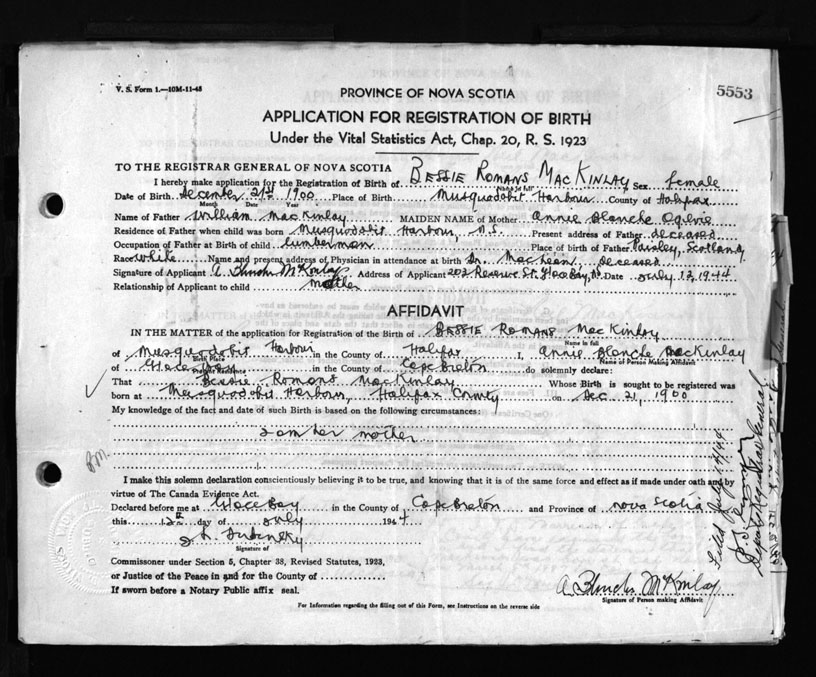 V. S. Form 1.—10M-11-43
5553
PROVINCE OF NOVA SCOTIA
APPLICATION FOR REGISTRATION OF BIRTH
Under the Vital Statistics Act, Chap. 20, R. S. 1923
TO THE REGISTRAR GENERAL OF NOVA SCOTIA
I hereby make application for the Registration of Birth of Bessie Romans MacKinlay Sex female
Name in full
Date of Birth December 21st 1900 Place of Birth Musquodobit Harbour County of Halifax
Month Date Year
Name of Father William MacKinlay MAIDEN NAME of Mother Annie Blanche Ogilvie
Residence of Father when child was born Musquodobit Harbour, N.S. Present address of Father deceased
Occupation of Father at Birth of child lumberman Place of birth of Father Paisley, Scotland
Race White Name and present address of Physician in attendance at birth Dr. MacLean, deceased
Signature of Applicant A Blanche McKinlay Address of Applicant 202 Reserve St. Glace Bay, N.S. Date July 12, 1944
Relationship of Applicant to child mother
AFFIDAVIT
IN THE MATTER of the application for Registration of the Birth of Bessie Romans MacKinlay
Name in full
of Musquodobit Harbour in the County of Halifax I, Annie Blanche MacKinlay
Birth Place Name of Person Making Affidavit
of Glace Bay in the County of Cape Breton do solemnly declare:
Present Residence
That Bessie Romans MacKinlay Whose Birth is sought to be registered was
born at Musquodobit Harbour, Halifax County on Dec 21, 1900
My knowledge of the fact and date of such Birth is based on the following circumstances:
I am her mother
I make this solemn declaration conscientiously believing it to be true, and knowing that it is of the same force and effect as if made under oath and by
virtue of The Canada Evidence Act.
Declared before me at Glace Bay in the County of Cape Breton and Province of Nova Scotia
this 12th day of July 1944
Signature of
Commissoner under Section 5, Chapter 38, Revised Statutes, 1923,
or Justice of the Peace in and for the County of
If sworn before a Notary Public affix seal.
A Blanche McKinlay
Signature of Person making Affidavit
For Information regarding the filling out of this Form, see Instructions on the reverse side
Filed July 14/44
Deputy Registrar General